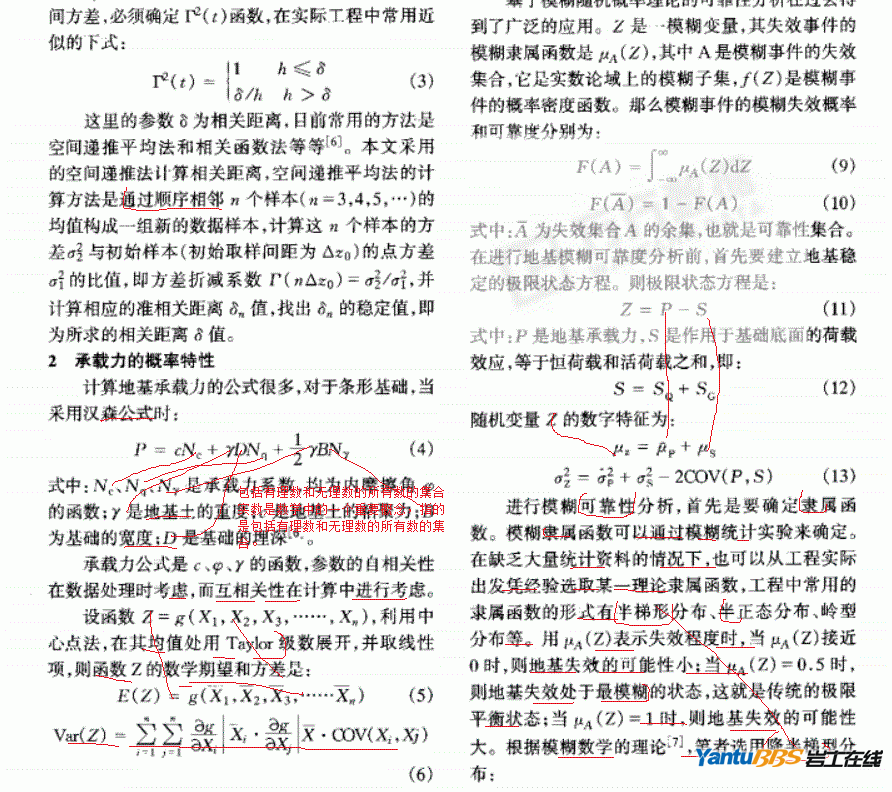 间方差,必须确定 Γ²(t)函数,在实际工程中常用近
似的下式:
Γ²(t) = { 1 h ⩽ δ
δ/h h > δ (3)
这里的参数 δ 为相关距离,目前常用的方法是
空间递推平均法和相关函数法等等[6]。本文采用
的空间递推法计算相关距离,空间递推平均法的计
算方法是通过顺序相邻 n 个样本(n=3,4,5,…)的
均值构成一组新的数据样本,计算这 n 个样本的方
差σ₂²与初始样本(初始取样间距为 Δz₀)的点方差
σ₁²的比值,即方差折减系数 Γ(nΔz₀)=σ₂²/σ₁²,并
计算相应的准相关距离 δₙ 值,找出 δₙ 的稳定值,即
为所求的相关距离 δ 值。
2 承载力的概率特性
计算地基承载力的公式很多,对于条形基础,当
采用汉森公式时:
P = cN_c + γDN_q + 1/2 γBN_γ (4)
式中:N_c、N_q、N_γ 是承载力系数,均为内摩擦角 φ
的函数;γ 是地基土的重度
是地基土的
力;
为基础的宽度;D 是基础的埋深
包括有理数和无理数的所有数的集合
是包括有理数和无理数的所有数的集
承载力公式是 c、φ、γ 的函数,参数的自相关性
在数据处理时考虑,而互相关性在计算中进行考虑。
设函数 Z=g(X₁,X₂,X₃,……,Xₙ),利用中
心点法,在其均值处用 Taylor 级数展开,并取线性
项,则函数 Z 的数学期望和方差是:
E(Z) = g(X̄₁,X̄₂,X̄₃,……X̄ₙ) (5)
Var(Z) = ∑ⁿᵢ₌₁ ∑ⁿⱼ₌₁ ∂g/∂Xᵢ | X̄ᵢ · ∂g/∂Xⱼ | X̄ · COV(Xᵢ,Xj)
(6)
到了广泛的应用。Z 是一模糊变量,其失效事件的
模糊隶属函数是 μ_A(Z),其中 A 是模糊事件的失效
集合,它是实数论域上的模糊子集,f(Z)是模糊事
件的概率密度函数。那么模糊事件的模糊失效概率
和可靠度分别为:
F(A) = ∫_{-∞}^{∞} μ_A(Z)dZ (9)
F(Ā) = 1 − F(A) (10)
式中:Ā 为失效集合 A 的余集,也就是可靠性集合。
在进行地基模糊可靠度分析前,首先要建立地基稳
定的极限状态方程。则极限状态方程是:
Z = P − S (11)
式中:P 是地基承载力,S 是作用于基础底面的荷载
效应,等于恒荷载和活荷载之和,即:
S = S_Q + S_G (12)
随机变量 Z 的数字特征为:
μ_z = μ_P + μ_S
σ_Z² = σ_P² + σ_S² − 2COV(P,S) (13)
进行模糊可靠性分析,首先是要确定隶属函
数。模糊隶属函数可以通过模糊统计实验来确定。
在缺乏大量统计资料的情况下,也可以从工程实际
出发凭经验选取某一理论隶属函数,工程中常用的
隶属函数的形式有半梯形分布、半正态分布、岭型
分布等。用 μ_A(Z)表示失效程度时,当 μ_A(Z)接近
0 时,则地基失效的可能性小;当 μ_A(Z)=0.5 时,
则地基失效处于最模糊的状态,这就是传统的极限
平衡状态;当 μ_A(Z)=1时,则地基失效的可能性
大。根据模糊数学的理论[7],笔者选用降半梯型分
布:
YantuBBS 岩土在线